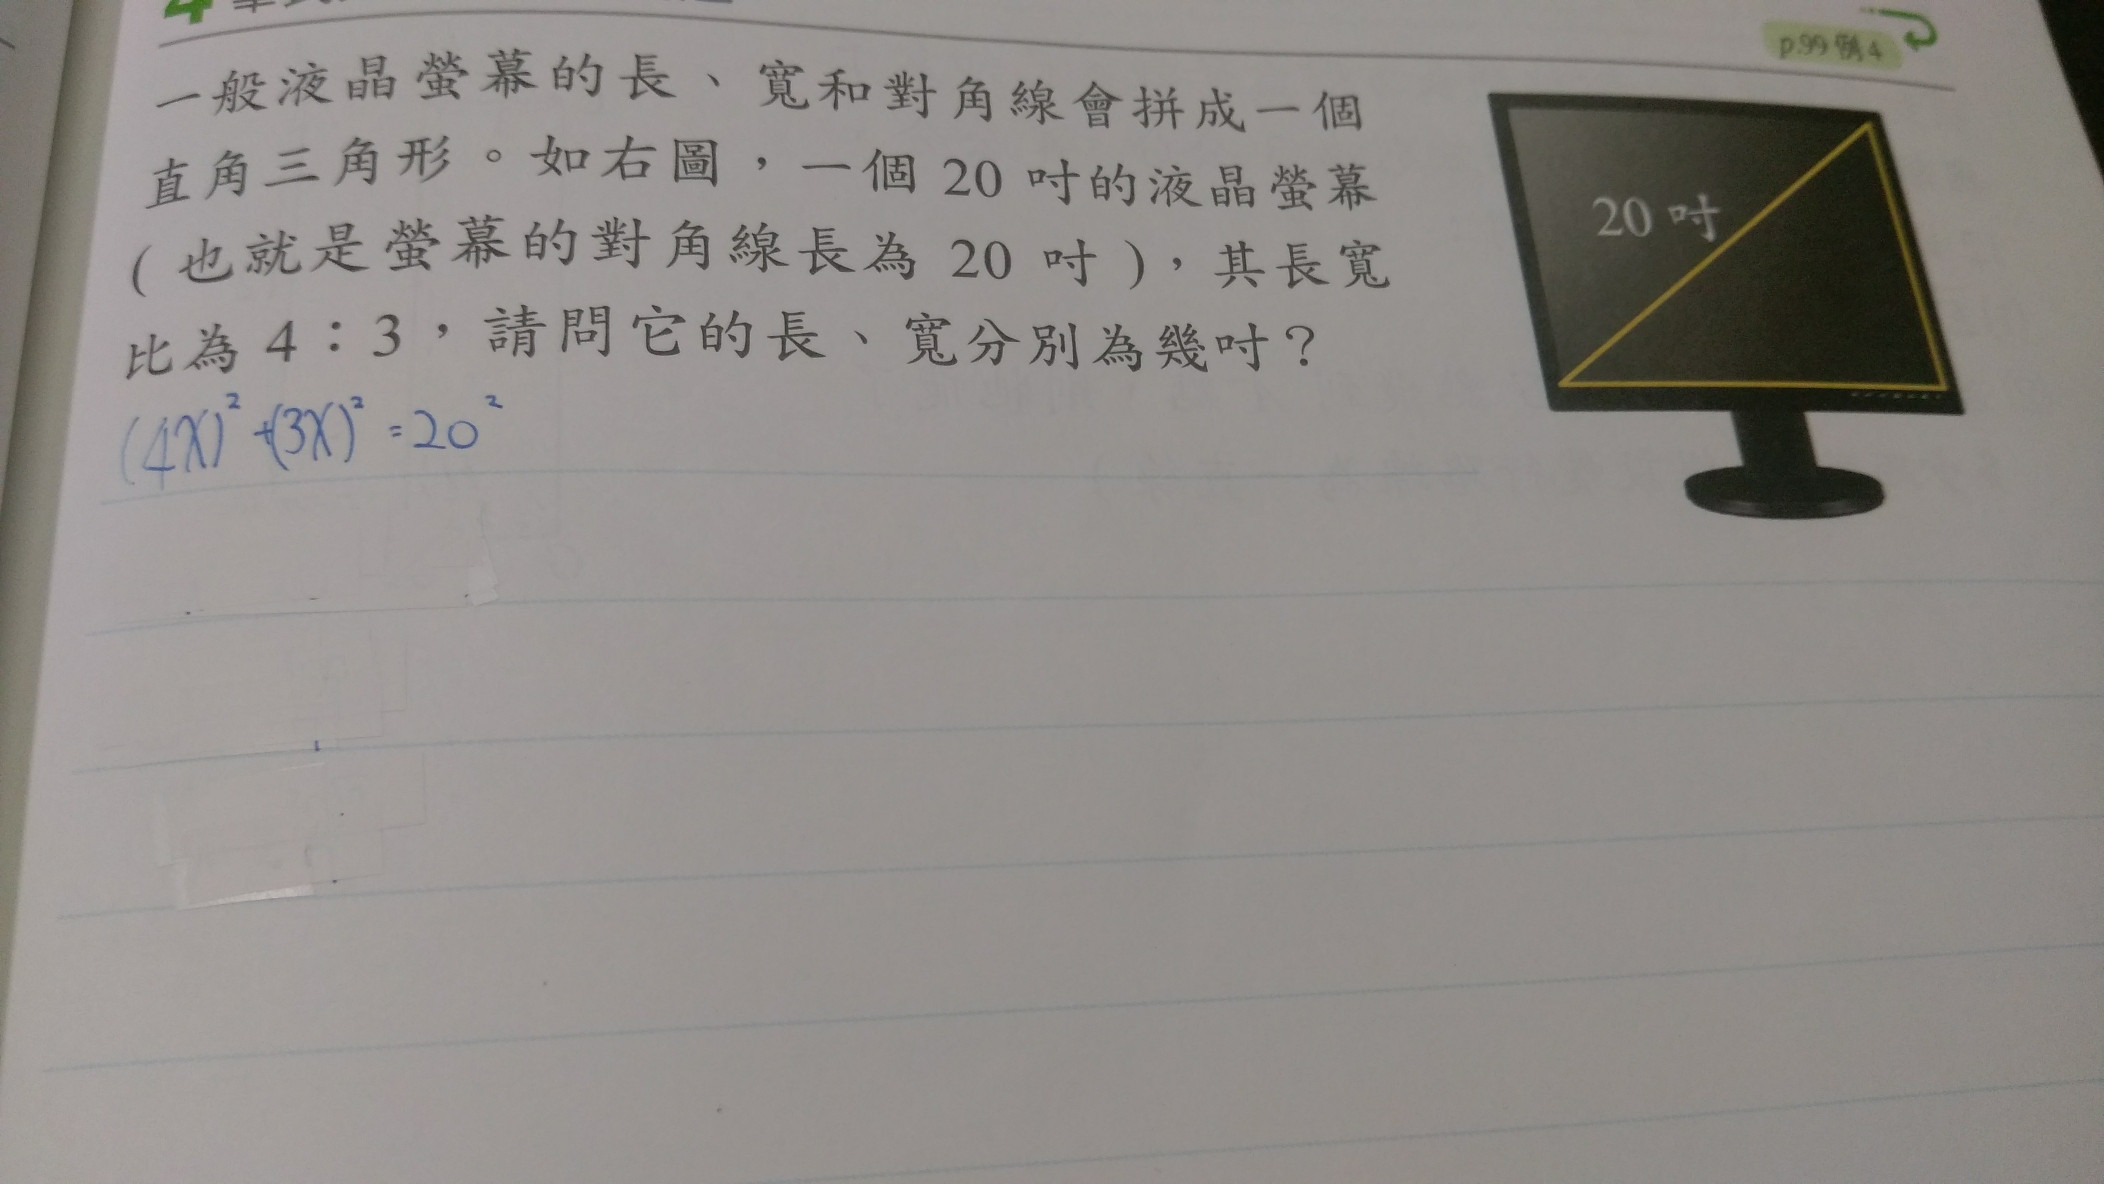 4
p.99 例 4
一般液晶螢幕的長、寬和對角線會拼成一個
直角三角形。如右圖，一個 20 吋的液晶螢幕
(也就是螢幕的對角線長為 20 吋)，其長寬
比為 4：3，請問它的長、寬分別為幾吋？
20 吋
(4X)² + (3X)² = 20²